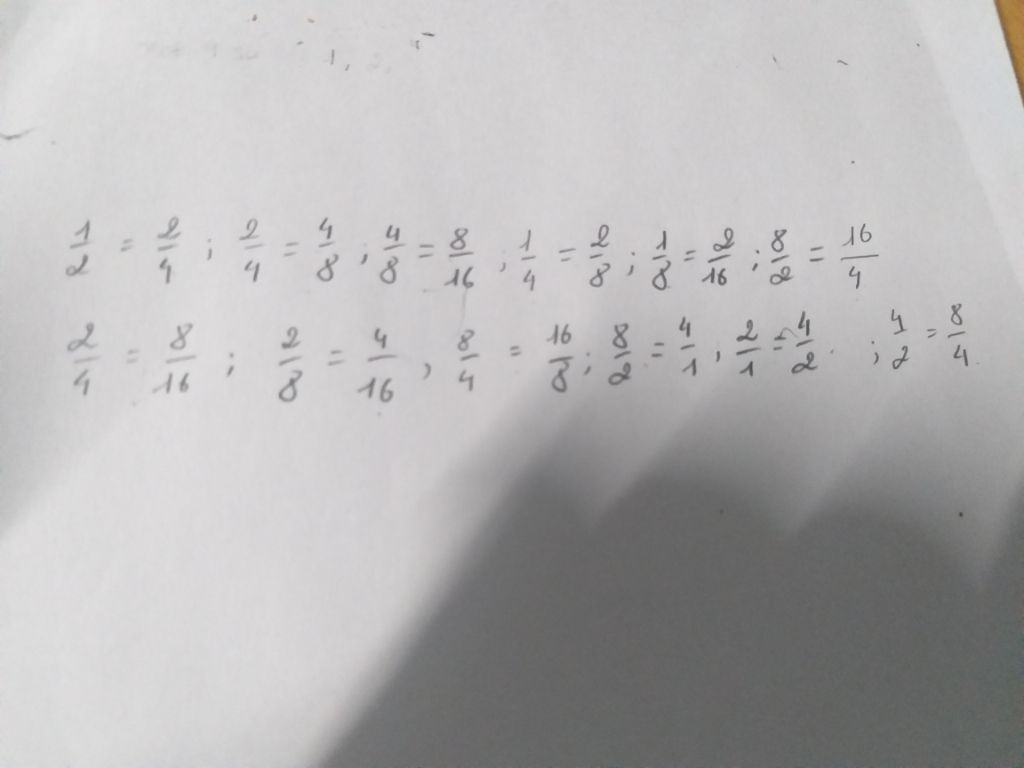 1/2 = 2/4 ; 2/4 = 4/8 ; 4/8 = 8/16 ; 1/4 = 2/8 ; 1/8 = 2/16 ; 8/2 = 16/4
2/4 = 8/16 ; 2/8 = 4/16 , 8/4 = 16/8 ; 8/2 = 4/1 , 2/1 = 4/2 ; 4/2 = 8/4